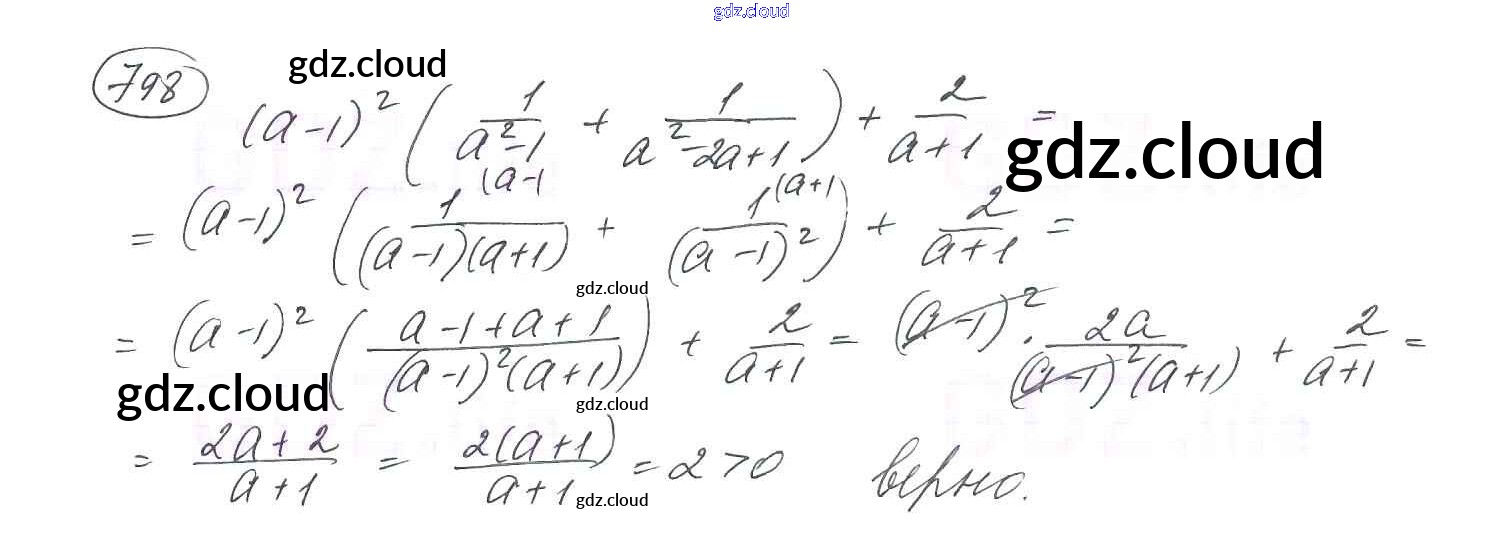 gdz.cloud
798 gdz.cloud
(a-1)² (1/(a²-1) + 1/(a²-2a+1)) + 2/(a+1) =
gdz.cloud
= (a-1)² (1(a-1/((a-1)(a+1)) + 1(a+1/(a-1)²) + 2/(a+1) =
gdz.cloud
= (a-1)² ((a-1+a+1)/((a-1)²(a+1))) + 2/(a+1) = (a-1)² · 2a/((a-1)²(a+1)) + 2/(a+1) =
gdz.cloud gdz.cloud
= (2a+2)/(a+1) = 2(a+1)/(a+1) = 2 > 0 верно.
gdz.cloud